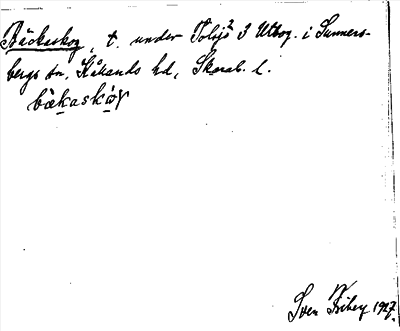 Bäckaskog, t. under Tolsjö 3 Utbog. i Sunners-
bergs sn. Kållands hd, Skarab. l.
bäkaskóγ
Sven Friberg 1927.